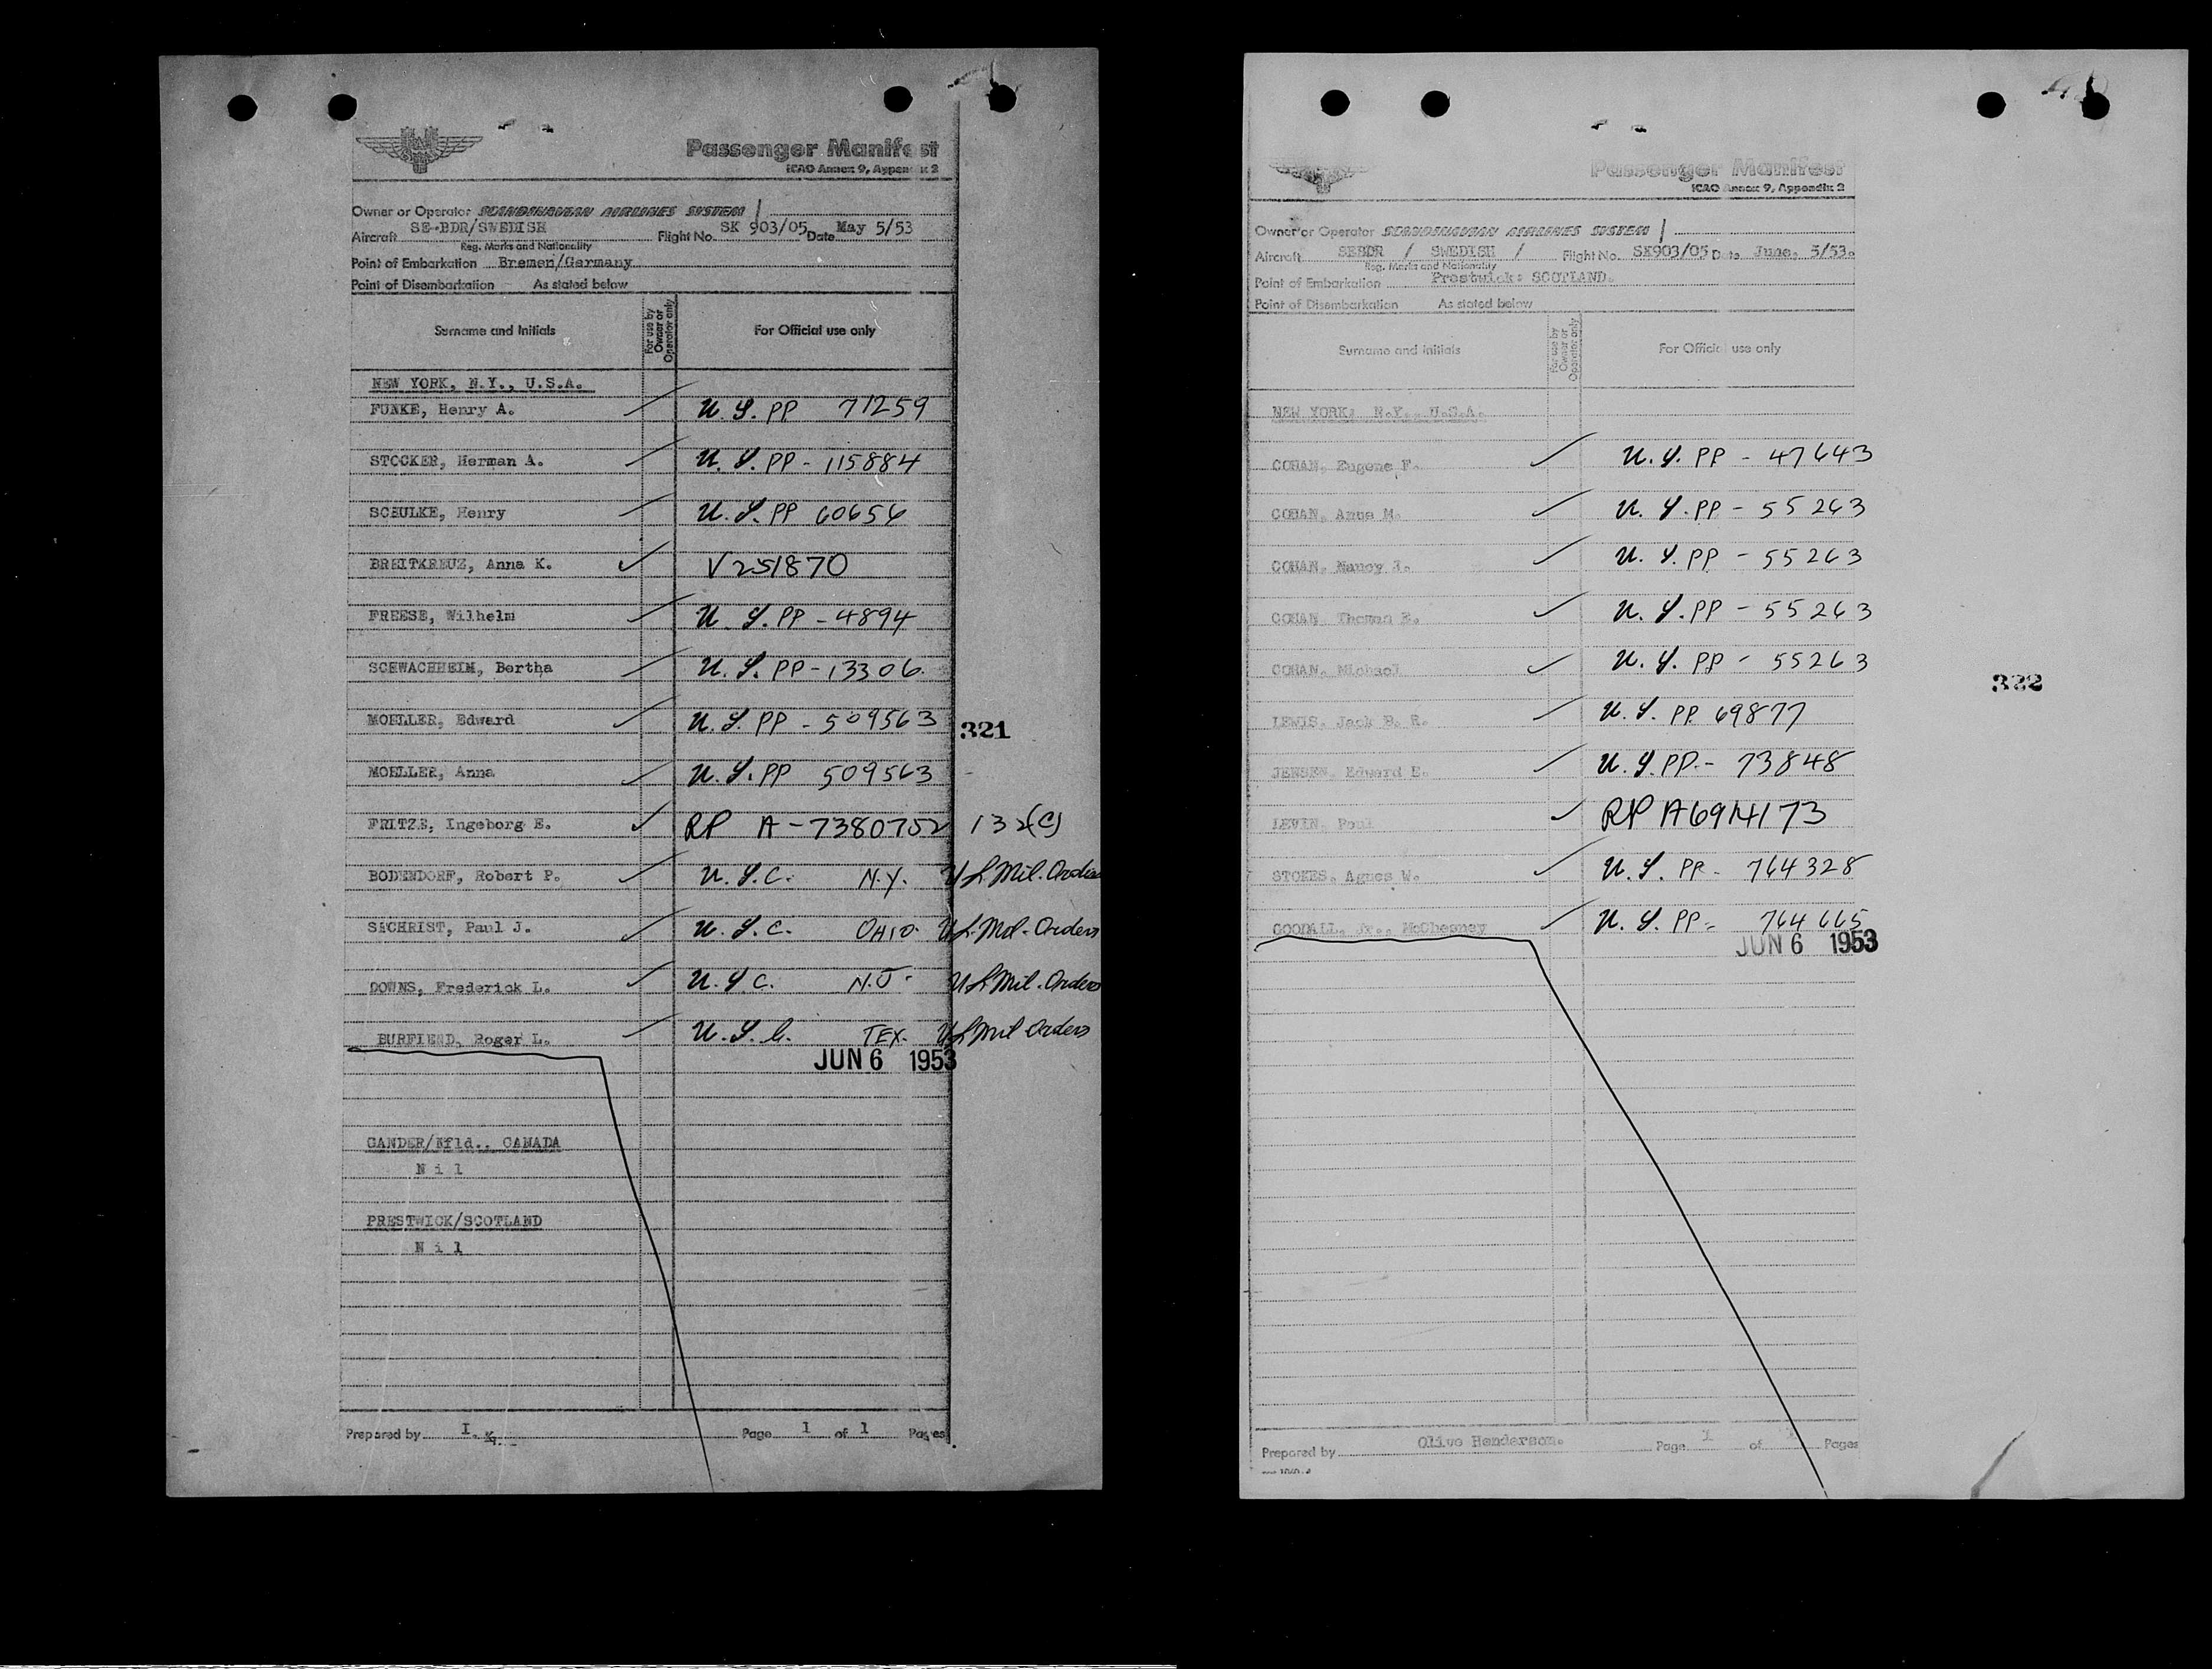 Passenger Manifest
ICAO Annex 9, Appendix 2
Owner or Operator SCANDINAVIAN AIRLINES SYSTEM
Aircraft SE-BDR/SWEDISH Flight No. SK 903/05 Date May 5/53
Reg. Marks and Nationality
Point of Embarkation Bremen/Germany
Point of Disembarkation As stated below
Surname and Initials For use by Owner or Operator only For Official use only
NEW YORK, N.Y., U.S.A.
FUNKE, Henry A. U.S. PP 71259
STOCKER, Herman A. U.S. PP - 115884
SCHULKE, Henry U.S. PP 60656
BREITKREUZ, Anna K. V251870
FREESE, Wilhelm U.S. PP - 4894
SCHWACHHEIM, Bertha U.S. PP - 13306
MOELLER, Edward U.S. PP - 509563
321
MOELLER, Anna U.S. PP 509563
FRITZE, Ingeborg E. RP A-7380752 132(c)
BODENDORF, Robert P. U.S.C. N.Y. US Mil. Orders
SECHRIST, Paul J. U.S.C. OHIO. US Mil. Orders
DOWNS, Frederick L. U.S.C. N.J. US Mil. Orders
BURFIEND, Roger L. U.S.C. TEX. US Mil Orders
JUN 6 1953
GANDER/Nfld., CANADA
Nil
PRESTWICK/SCOTLAND
Nil
Prepared by I. Page 1 of 1 Pages
Passenger Manifest
ICAO Annex 9, Appendix 2
Owner or Operator SCANDINAVIAN AIRLINES SYSTEM
Aircraft SEBDR / SWEDISH / Flight No. SK903/05 Date June, 5/53.
Reg. Marks and Nationality
Point of Embarkation Prestwick: SCOTLAND.
Point of Disembarkation As stated below
Surname and Initials For use by Owner or Operator only For Official use only
NEW YORK, N.Y., U.S.A.
COHAN, Eugene F. U.S. PP - 47643
COHAN, Anna M. U.S. PP - 55263
COHAN, Nancy J. U.S. PP - 55263
COHAN, Thomas E. U.S. PP - 55263
COHAN, Michael U.S. PP - 55263
322
LEWIS, Jack B. R. U.S. PP 69877
JENSEN, Edward E. U.S. PP. - 73848
LEVIN, Poul RP A6914173
STOKES, Agnes W. U.S. PP - 764328
GOODALL, Jr., McChesney U.S. PP - 764665
JUN 6 1953
Prepared by Olive Henderson. Page 1 of 1 Pages